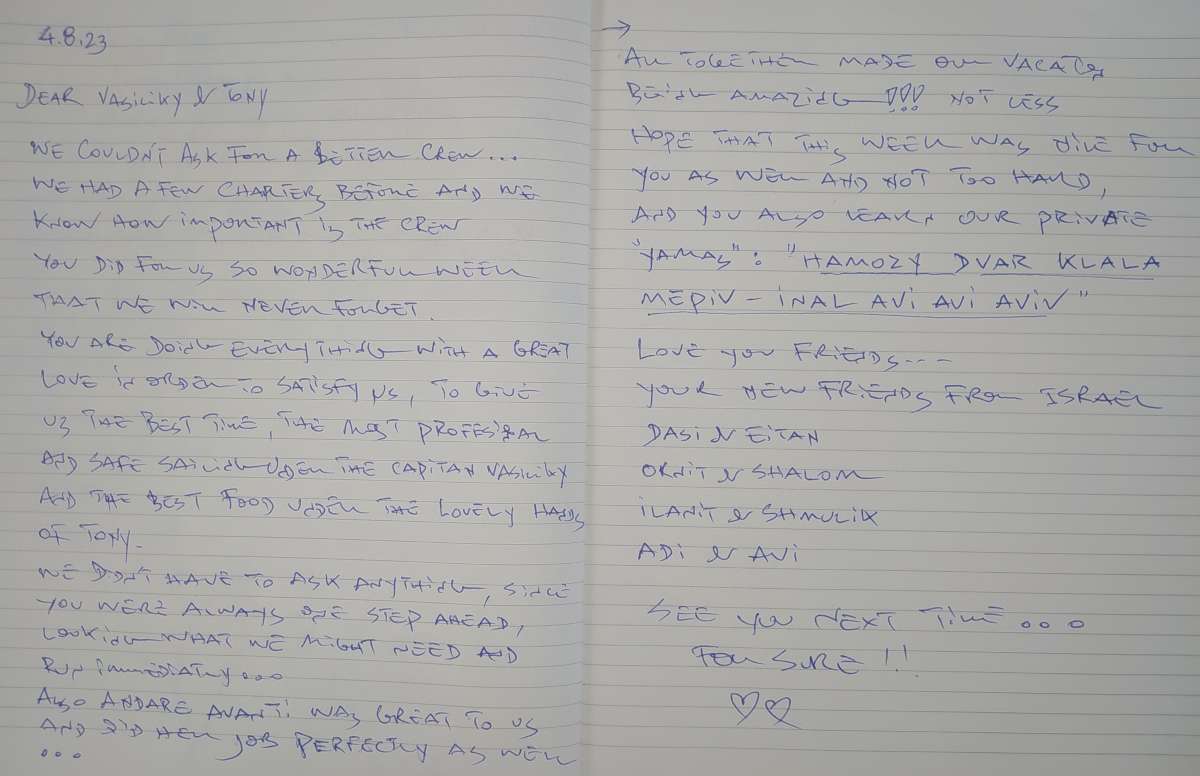 4.8.23
DEAR VASILIKY & TONY
WE COULDN'T ASK FOR A BETTER CREW...
WE HAD A FEW CHARTERS BEFORE AND WE
KNOW HOW IMPORTANT IS THE CREW
YOU DID FOR US SO WONDERFUL WEEK
THAT WE WILL NEVER FORGET.
YOU ARE DOING EVERYTHING WITH A GREAT
LOVE IN ORDER TO SATISFY US, TO GIVE
US THE BEST TIME, THE MOST PROFESIONAL
AND SAFE SAILING UNDER THE CAPITAN VASILIKY
AND THE BEST FOOD UNDER THE LOVELY HANDS
OF TONY.
WE DIDN'T HAVE TO ASK ANYTHING, SINCE
YOU WERE ALWAYS ONE STEP AHEAD,
LOOKING WHAT WE MIGHT NEED AND
RUN IMMEDIATLY...
ALSO ANDARE AVANTI WAS GREAT TO US
AND DID HER JOB PERFECTLY AS WELL
...
→
ALL TOGETHER MADE OUR VACATION
BEING AMAZING!!! NOT LESS
HOPE THAT THIS WEEK WAS NICE FOR
YOU AS WELL AND NOT TOO HARD,
AND YOU ALSO LEARN OUR PRIVATE
"YAMAS": "HAMOZY DVAR KLALA
MEPIV - INAL AVI AVI AVIV"
LOVE YOU FRIENDS...
YOUR NEW FRIENDS FROM ISRAEL
DASI & EITAN
ORNIT & SHALOM
ILANIT & SHMULIK
ADI & AVI
SEE YOU NEXT TIME...
FOR SURE!!
♡♡